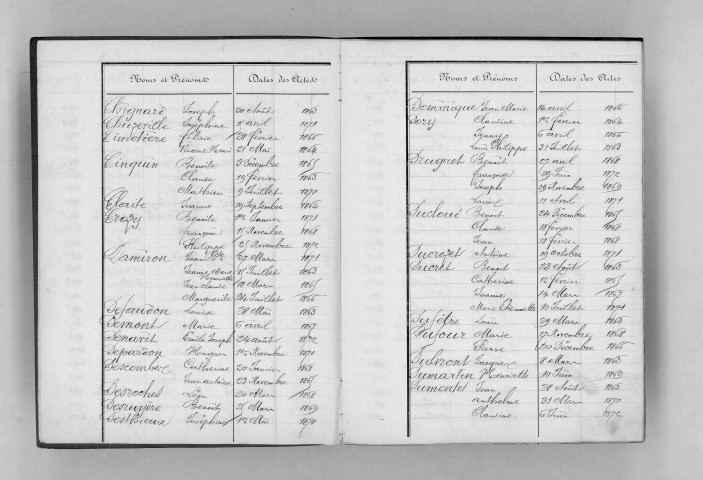 Noms et Prénoms Dates des Actes
Chignard Joseph 20 août 1863
Chuzeville Joséphine 11 avril 1871
Cimetière 28 février 1866
Vincent Henri 21 Mai 1864
Cinquin Benoîte 3 Décembre 1865
Claude 19 février 1863
Mathieu 9 Juillet 1870
Claite Jeanne 19 Septembre 1864
Crozy Benoîte 1er Janvier 1871
François 15 Novembre 1868
Philippe 25 Novembre 1872
Damiron Jean 27 Mars 1871
Jeanne Marie Henriette 11 Juillet 1863
Jean Claude 12 Mars 1865
Marguerite 24 Juillet 1866
Louise 28 Mai 1863
Demont Marie 6 avril 1867
Denavit Emile Joseph 24 août 1872
Depardon 1er Novembre 1870
Descombes Catherine 20 Janvier 1868
22 Novembre 1865
Desroches 20 Mars 1868
Benoîte 25 Mars 1869
Joséphine 1er Mai 1870
Noms et Prénoms Dates des Actes
Dominique Jean Marie 14 avril 1866
Dory Claudine 1er février 1864
6 avril 1866
Louis Philippe 31 Juillet 1863
Druguet Benoît 27 avril 1868
françoise 29 Juin 1872
Joseph 29 Novembre 1869
Louis 11 avril 1871
Ducloud Benoît 24 Décembre 1865
Claude 18 février 1868
Jean 18 février 1868
Ducrozet Antoine 19 octobre 1871
Ducret Benoît 23 août 1863
Catherine 12 février 1865
Jeanne 14 Mars 1867
Marie Etiennette 10 Juillet 1871
Dufêtre Louis 29 Mars 1863
Dufour Marie 17 Novembre 1868
Pierre 20 Décembre 1866
Jacques 8 Mars 1863
Dumartin Henriette 10 Juin 1869
Dumontet Jean 28 août 1863
anthelme 31 Mars 1870
Claudine 6 Juin 1872